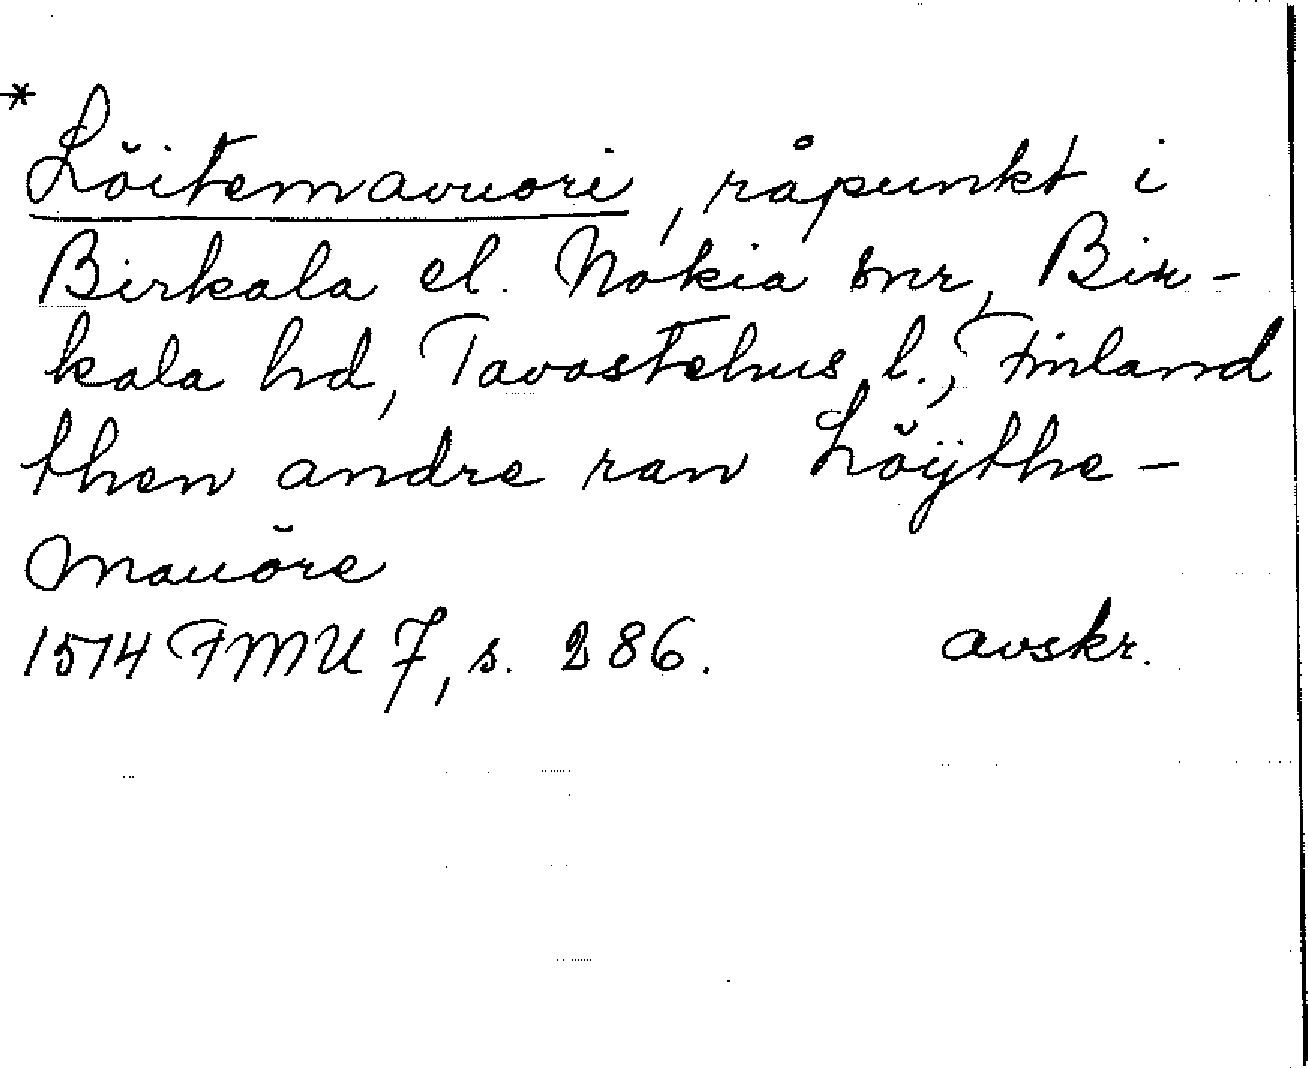 * Löitemavuori, råpunkt i
Birkala el. Nokia snr, Bir-
kala hd, Tavastehus l., Finland
then andre ran Löÿthe-
mauöre
1514 FMU 7, s. 286. avskr.